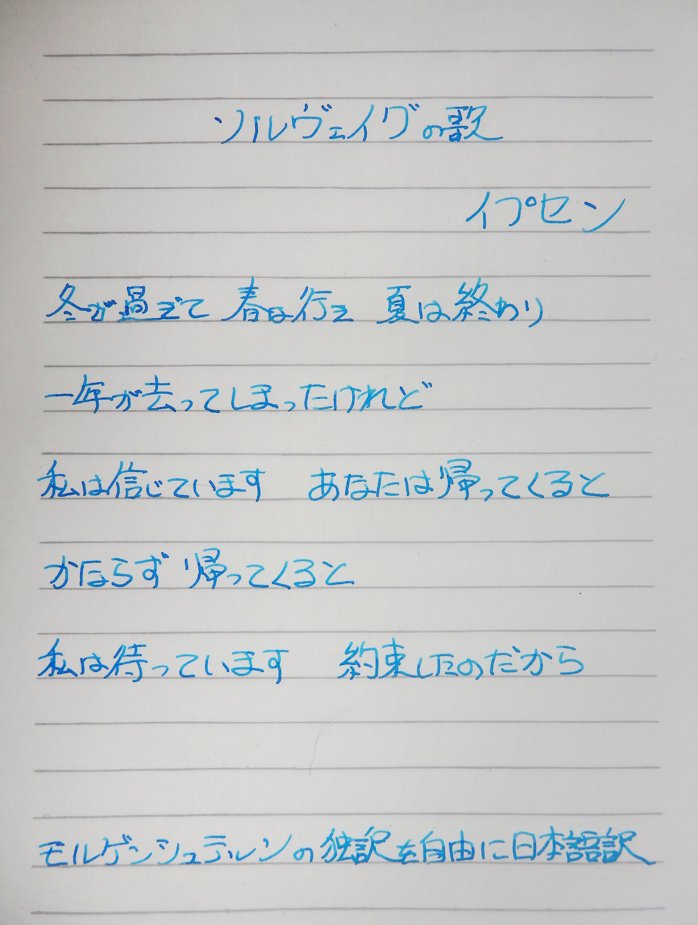 ソルヴェイグの歌
イプセン
冬が過ぎて 春は行き 夏は終わり
一年が去ってしまったけれど
私は信じています あなたは帰ってくると
かならず帰ってくると
私は待っています 約束したのだから
モルゲンシュテルンの独訳を自由に日本語訳